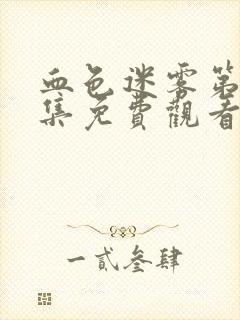 血色迷雾第
集免費觀看
一貳叁肆